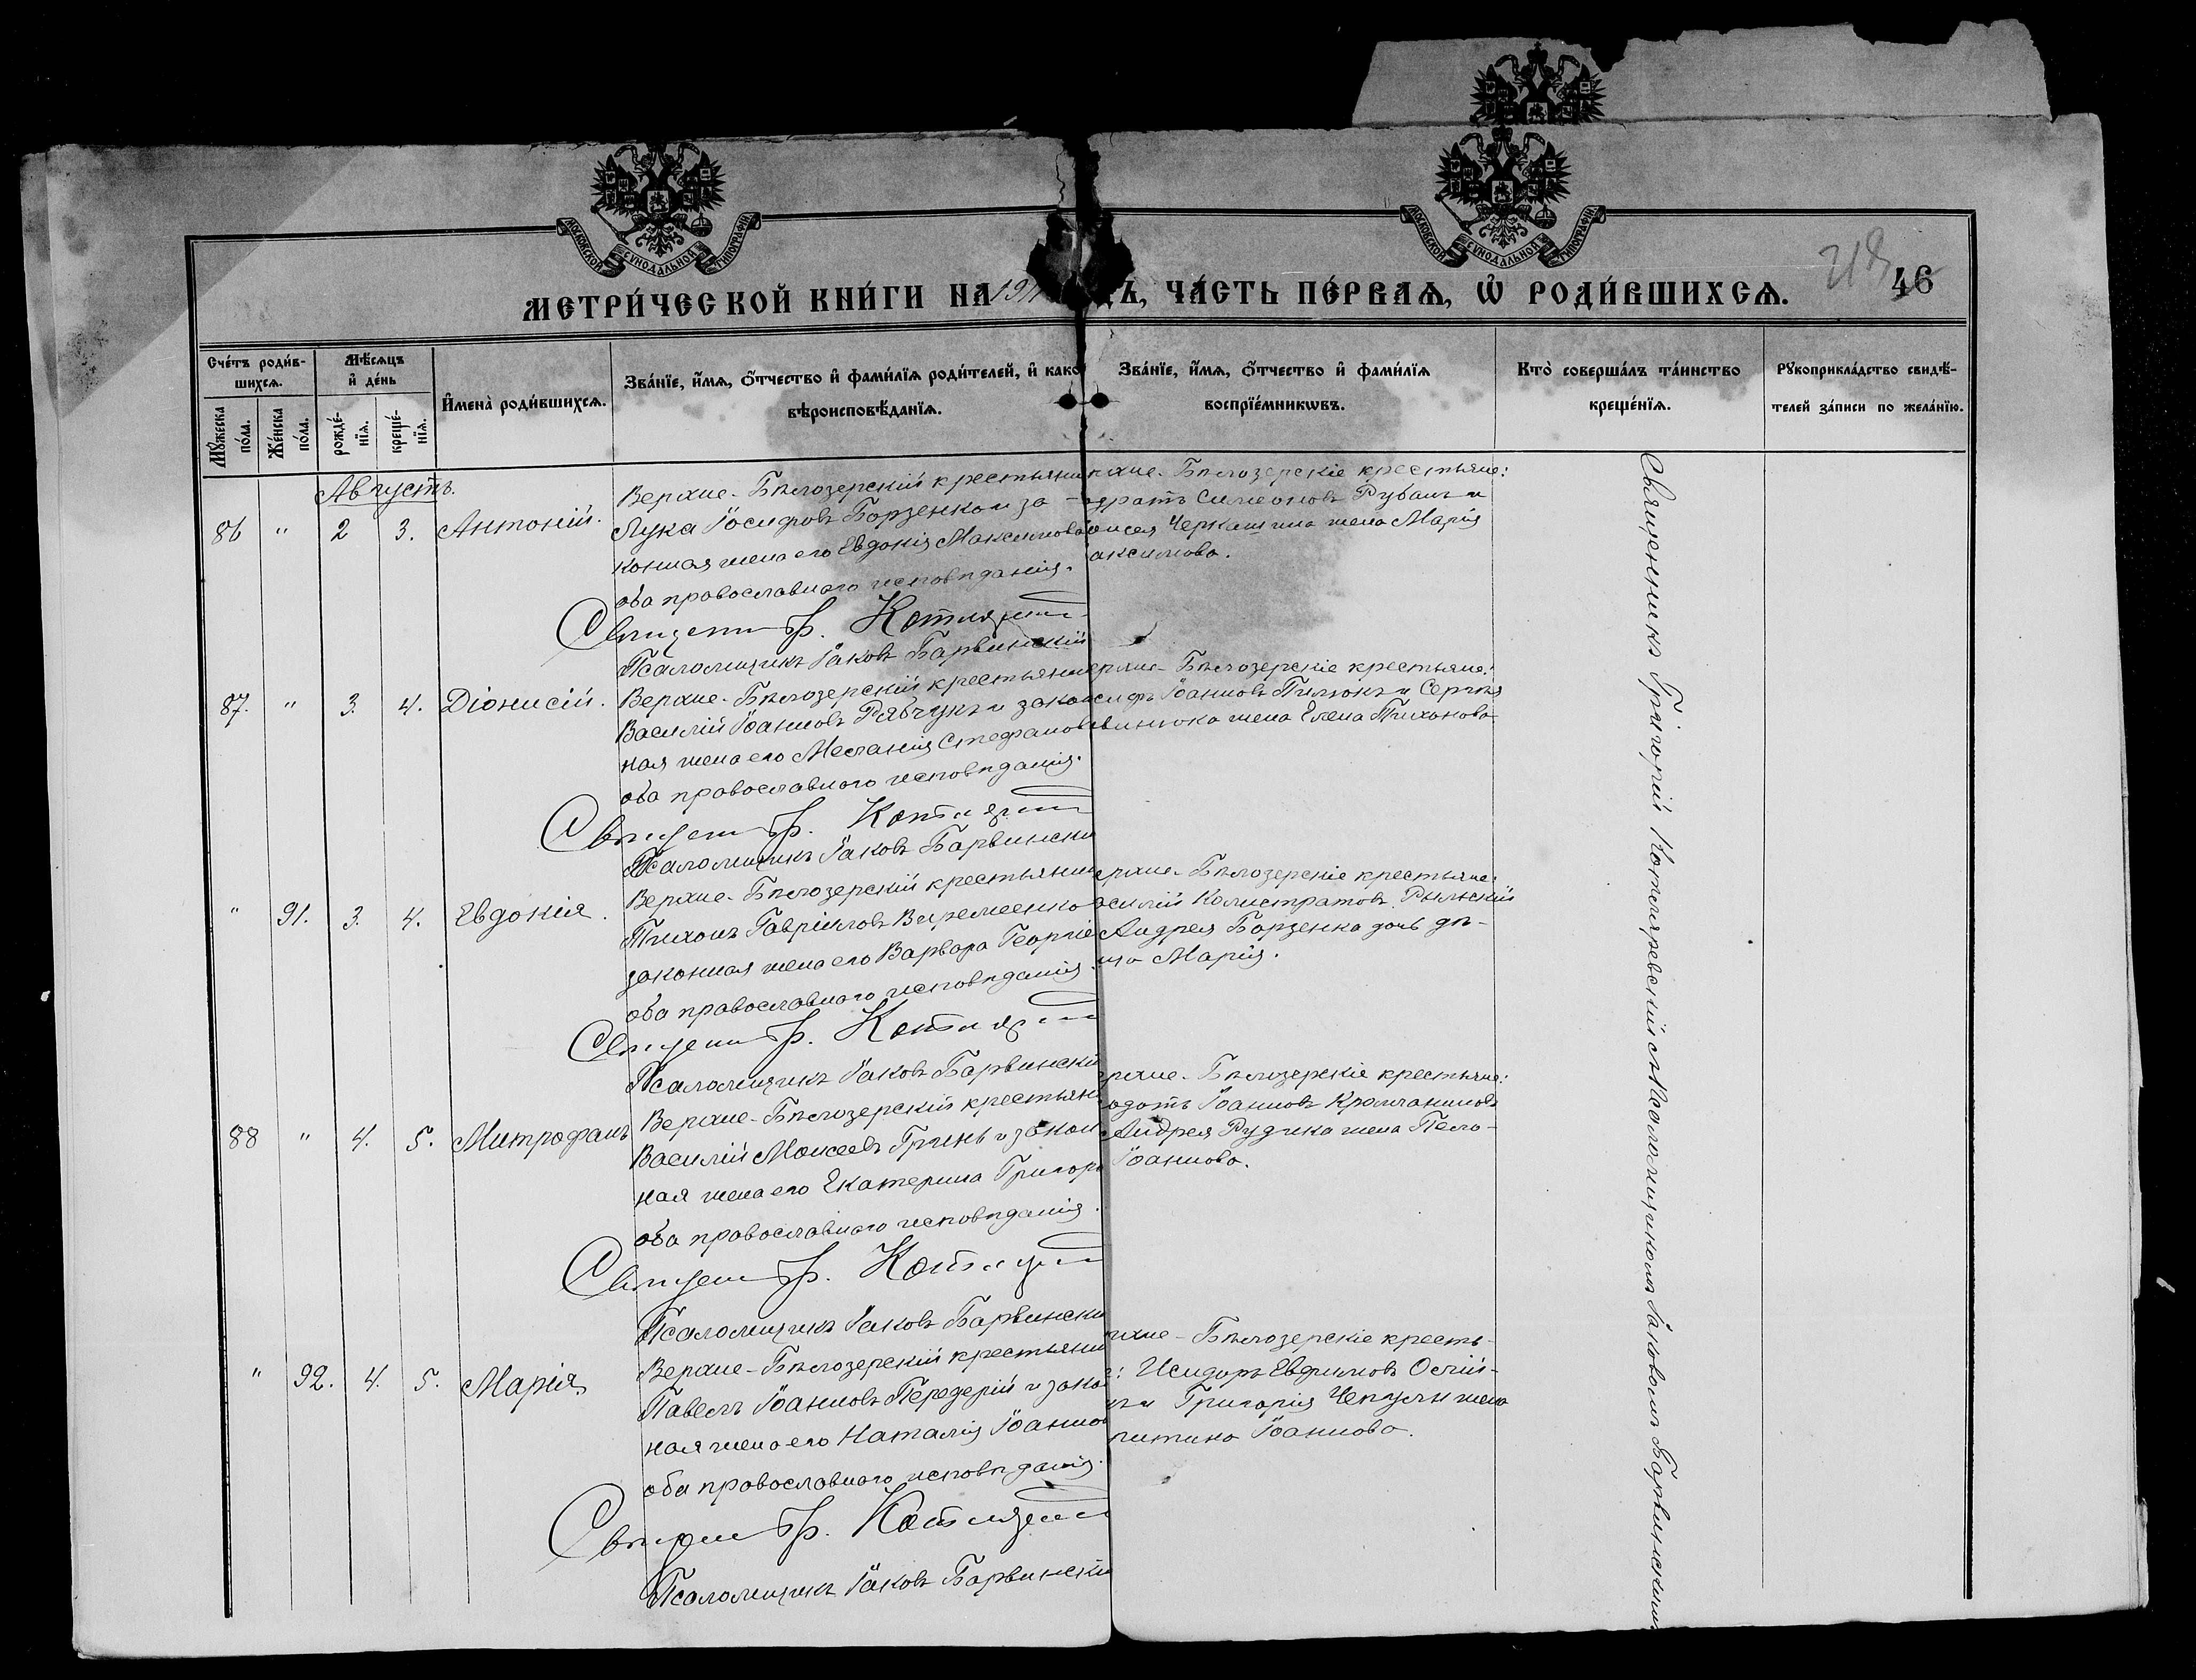 МОСКОВСКОЙ СУНОДАЛЬНОЙ ТИПОГРАФІИ
МОСКОВСКОЙ СУНОДАЛЬНОЙ ТИПОГРАФІИ
МЕТРИ́ЧЕСКОЙ КНИ́ГИ НА 191 ДЪ, ЧА́СТЬ ПЕ́РВАѦ, Ѡ҆ РОДИ́ВШИХСѦ.
46
Сче́тъ роди́в-
шихсѧ.
Мѣ́сѧцъ
и҆ де́нь
Мꙋ́жеска по́ла.
Же́нска по́ла.
рожде́-нїѧ.
креще́-нїѧ.
И҆мена̀ роди́вшихсѧ.
Зва́нїе, и҆́мѧ, ѻ҆́тчество и҆ фами́лїѧ роди́телей, и҆ како
вѣроисповѣ́данїѧ.
Зва́нїе, и҆́мѧ, ѻ҆́тчество и҆ фами́лїѧ
воспрїе́мникѡвъ.
Кто̀ соверша́лъ та́инство
креще́нїѧ.
Рꙋкоприкла́дство свидѣ́-
телей за́писи по жела́нїю.
Августъ.
86 " 2 3. Антоній.
Верхне-Бѣлозерскій крестьянин
Лука Іосифовъ Борзенко и за-
конная жена его Евдокія Максимова
оба православнаго исповѣданія.
Священ Гр. Котляр
Псаломщикъ Іаковъ Барвинскій
рхне-Бѣлозерскіе крестьяне:
дратъ Симеоновъ Рубанъ и
оисея Черкашина жена Марія
аксимова.
87. " 3. 4. Діонисій.
Верхне-Бѣлозерскій крестьянин
Василій Іоанновъ Рябчукъ и закон
ная жена его Меланія Стефанова
оба православнаго исповѣданія.
Священ Гр. Котляр
Псаломщикъ Іаковъ Барвински
ерхне-Бѣлозерскіе крестьяне:
сифъ Іоанновъ Пилюкъ и Сергѣя
винюка жена Елена Тихонова
" 91. 3. 4. Евдокія.
Верхне-Бѣлозерскій крестьянин
Тихонъ Гавріиловъ Вереме­енко
законная жена его Варвара Георгіе
оба православнаго исповѣданія.
Священ Гр. Котляр
Псаломщикъ Іаковъ Барвински
ерхне-Бѣлозерскіе крестьяне:
асилій Калистратовъ Рыльскій
Андрея Борзенка дочь дѣ-
ца Марія.
88 " 4. 5. Митрофанъ
Верхне-Бѣлозерскій крестьян
Василій Моисеевъ Гринь и закон
ная жена его Екатерина Григорь
оба православнаго исповѣданія.
Священ Гр. Котляр
Псаломщикъ Іаковъ Барвински
рхне-Бѣлозерскіе крестьяне:
одотъ Іоанновъ
Андрея Рудика жена Пела-
Іоаннова.
" 92. 4. 5. Марія
Верхне-Бѣлозерскій крестьянин
Павелъ Іоанновъ Передерій и закон
ная жена его Наталія Іоаннов
оба православнаго исповѣданія.
Священ Гр. Котляр
Псаломщикъ Іаковъ Барвински
рхне-Бѣлозерскіе кресть-
: Исидоръ Евфимовъ
и Григорія жена
питина Іоаннова.
Священникъ Григорій Котляревскій съ псаломщикомъ Іаковомъ Барвинскимъ